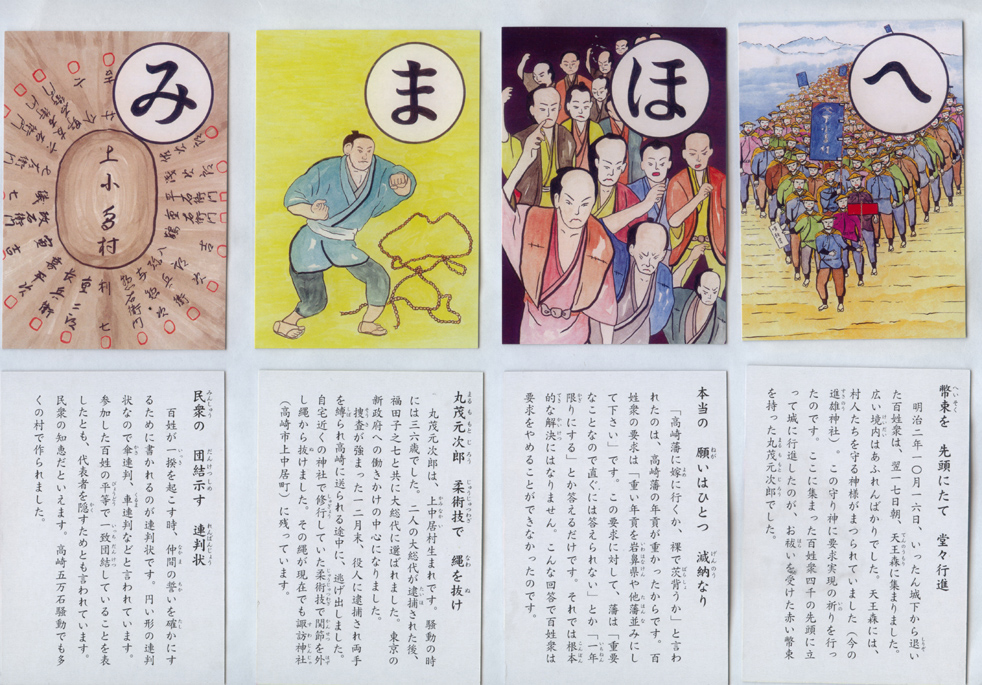 へ
ほ
ま
み
上小鳥村
幣束を　先頭にたて　堂々行進
明治二年一〇月一六日、いったん城下から退い
た百姓衆は、翌一七日朝、天王森に集まりました。
広い境内はあふれんばかりでした。天王森には、
村人たちを守る神様がまつられていました（今の
進雄神社）。この守り神に要求実現の祈りを行っ
たのです。ここに集まった百姓衆四千の先頭に立
って城に行進したのが、お祓いを受けた赤い幣束
を持った丸茂元次郎でした。
本当の　願いはひとつ　減納なり
「高崎藩に嫁に行くか、裸で茨背うか」と言わ
れたのは、高崎藩の年貢が重かったからです。百
姓衆の要求は「重い年貢を岩鼻県や他藩並みにし
て下さい」です。この要求に対して、藩は「重要
なことなので直ぐには答えられない」とか「一年
限りにする」とか答えるだけです。それでは根本
的な解決にはなりません。こんな回答で百姓衆は
要求をやめることができなかったのです。
丸茂元次郎　柔術技で　縄を抜け
丸茂元次郎は、上中居村生まれです。騒動の時
には三六歳でした。二人の大総代が逮捕された後、
福田子之七と共に大総代に選ばれました。東京の
新政府への働きかけの中心になりました。
捜査が強まった一二月末、役人に逮捕され両手
を縛られ高崎に送られる途中に、逃げ出しました。
自宅近くの神社で修行していた柔術技で関節を外
し縄から抜けました。その縄が現在でも諏訪神社
（高崎市上中居町）に残っています。
民衆の　団結示す　連判状
百姓が一揆を起こす時、仲間の誓いを確かにす
るために書かれるのが連判状です。円い形の連判
状なので傘連判、車連判などと言われています。
参加した百姓の平等で一致団結していることを表
したとも、代表者を隠すためとも言われています。
民衆の知恵だといえます。高崎五万石騒動でも多
くの村で作られました。